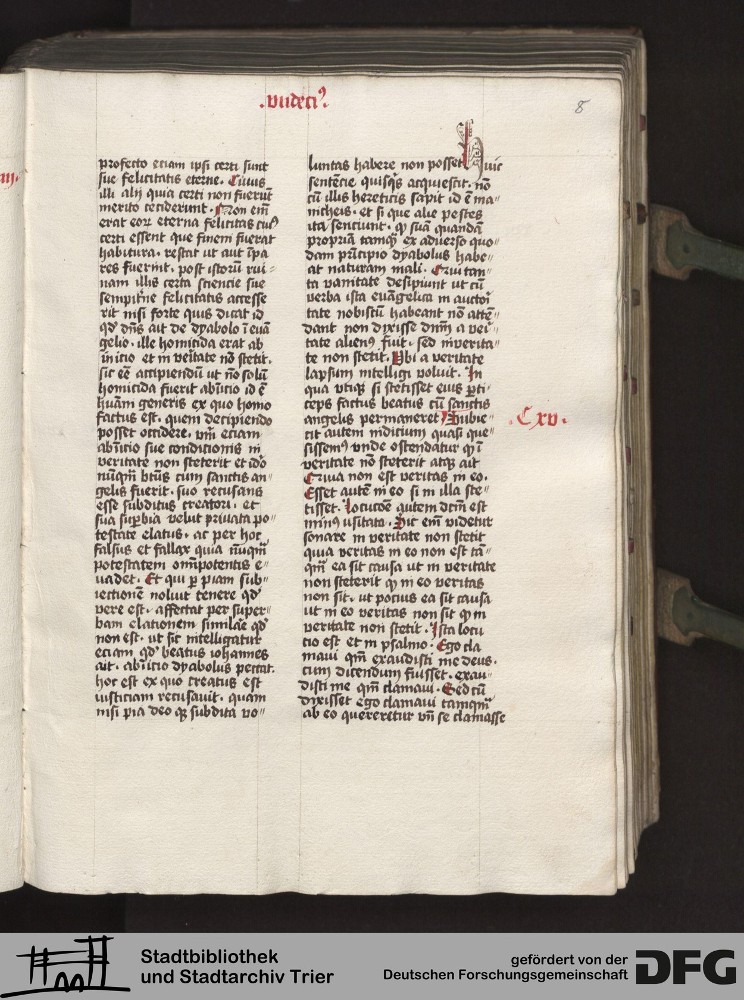 .vndeciꝰ.
8
profecto etiam ipsi certi sunt
sue felicitatis eterne. Cuius
illi alij quia certi non fuerūt
merito ceciderunt. Non em̄
erat eoꝝ eterna felicitas cuꝰ
certi essent que finem fuerat
habitura. restat ut aut īpa
res fuerint. post istoꝝ rui-
nam illis certa sciencie sue
sempit̄ne felicitatis accesse
rit nisi forte quis dicat id
qd' dn̄s ait de dyabolo ī euā
gelio. ille homicida erat ab
inicio et in veritate nō stetit.
sic eē accipiendū ut nō solū
homicida fuerit ab inicio id ē
huāni generis ex quo homo
factus est. quem decipiendo
posset occidere. vm̄ etiam
ab inicio sue conditionis in
veritate non steterit et ido
nūqm̄ btūs cum sanctis an-
gelis fuerit. suo recusans
esse subditus creatori. et
sua suꝑbia velut priuata po-
testate elatus. ac per hoc
falsus et fallax quia nūqm̄
potestatem omīpotentis e-
uadet. Et qui ꝑ piam sub-
iectionē noluit tenere qd'
vere est. affectat per super-
bam elationem similāe qd'
non est. ut sic intelligatur
etiam qd' beatus iohannes
ait. ab inicio dyabolus peccat.
hoc est ex quo creatus est
iusticiam recusauit. quam
nisi pia deo qꝫ subdita vo-
luntas habere non posset Huic
sentēcie quisqꝫ acquiescit. nō
cū illis hereticis sapit id ē ma-
nicheis. et si que alie pestes
ita senciunt. qꝫ suā quandā
propriā tamqꝫ ex aduerso quo-
dam pn̄cipio dyabolus habe-
at naturam mali. Qui tan-
ta vanitate desipiunt ut cū
verba ista euāgelica in auctoi
tate nobiscū habeant nō attē-
dant non dixisse dnm̄ a vei-
tate alienꝰ fuit. sed in verita-
te non stetit. Vbi a veritate
lapsum intelligi voluit. In
qua vtiqꝫ si stetisset eius ꝑti-
ceps factus beatus cū sanctis
angelis permaneret. Subie-
cit autem indicium quasi que-
sissemꝰ vnde ostendatur qꝫ ī
veritate nō steterit atqꝫ ait
Quia non est veritas in eo.
Esset autē in eo si in illa ste-
tisset. Locucōe autem dcm̄ est
minꝰ usitata. Sic em̄ videtur
sonare in veritate non stetit
quia veritas in eo non est tā-
qm̄ ea sit causa ut in veritate
non steterit qꝫ in eo veritas
non sit. ut pocius ea sit causa
ut in eo veritas non sit qꝫ in
veritate non stetit. Ista locu
cio est et in psalmo. Ego cla
maui qm̄ exaudisti me deus.
cum dicendum fuisset. exau-
disti me qm̄ clamaui. Sed cū
dixisset ego clamaui tamqm̄
ab eo quereretur vn̄ se clamasse
.C xv.
Stadtbibliothek
und Stadtarchiv Trier
gefördert von der
Deutschen Forschungsgemeinschaft
DFG